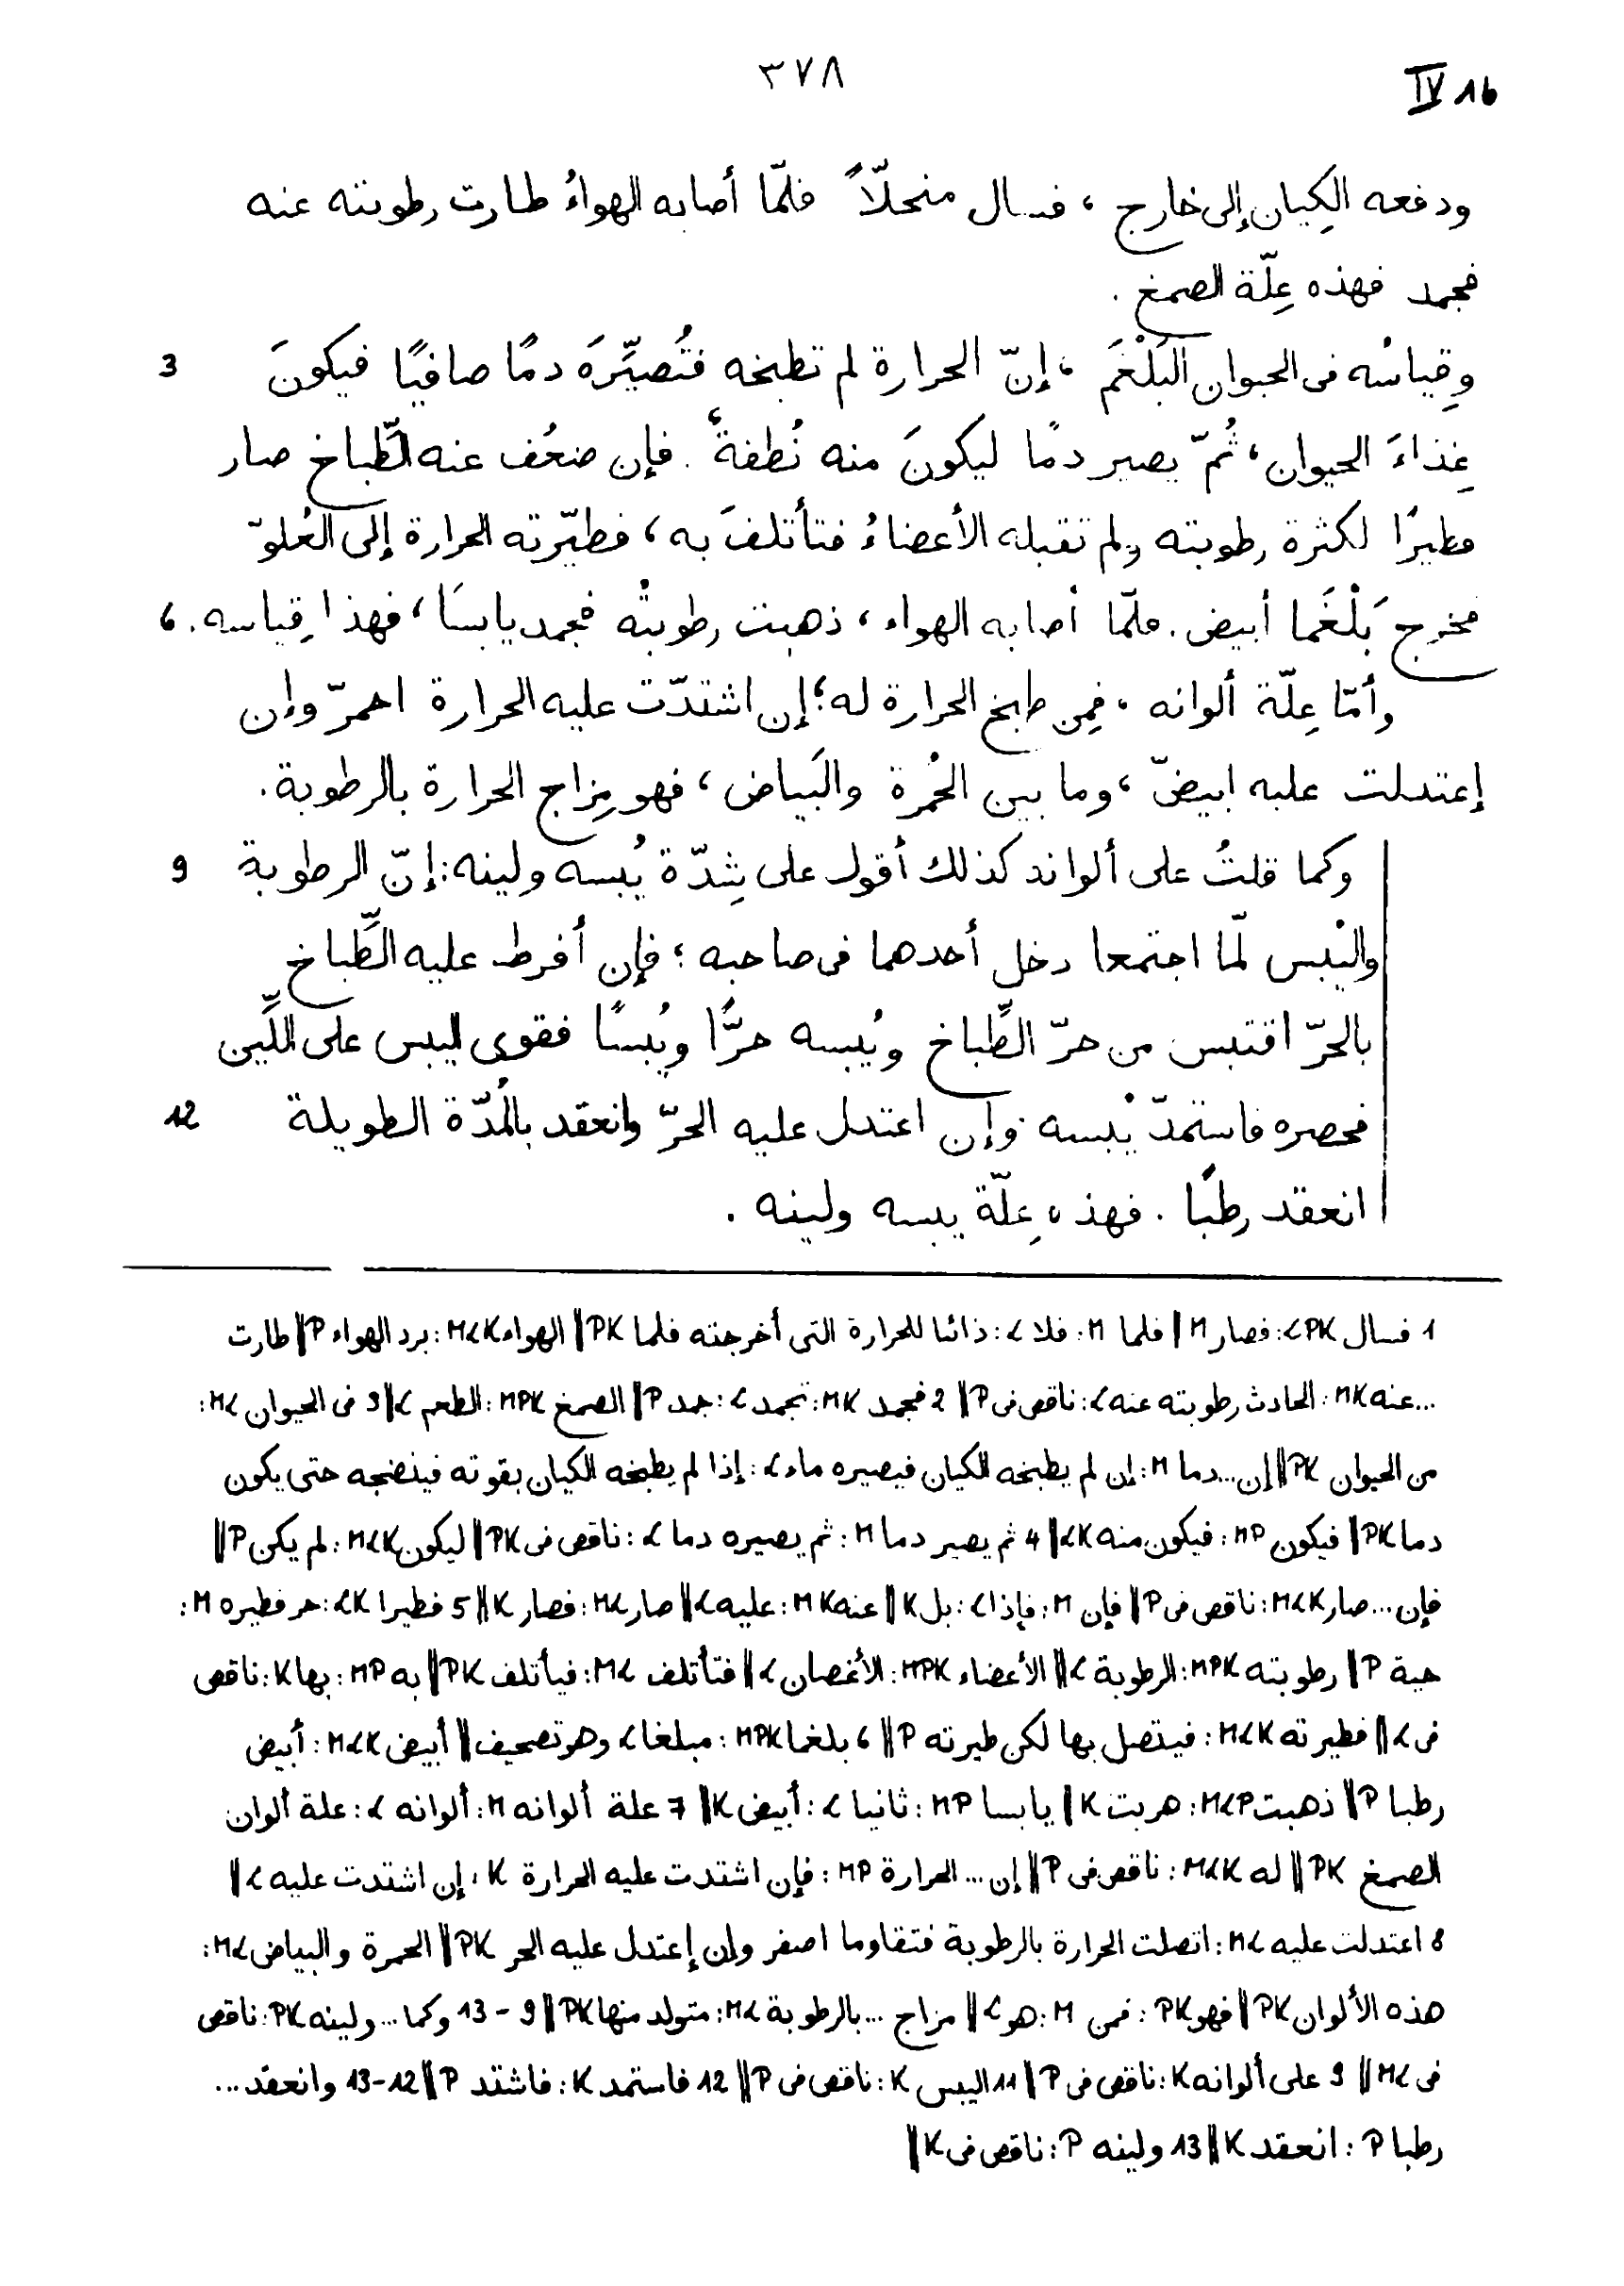 ٣٧٨
IV 16
ودفعه الكِيان إلى خارج ، فسال منحلّاً فلمّا أصابه الهواءُ طارت رطوبته عنه
فجمد فهذه عِلّة الصمغ .
3 وقِياسُه فى الحيوان البَلْغَم ، إنّ الحرارة لم تطبخه فتُصيِّرَه دمًا صافيًا فيكونَ
غِذاءَ الحيوان ، ثُمّ يصير دمًا ليكونَ منه نُطفةٌ . فإن ضعُف عنه الطِّباخ صار
فطيرًا لكثرة رطوبته ولم تقبله الأعضاءُ فتأتلفَ به ، فطيّرته الحرارة إلى العُلوّ
6 فخرج بَلْغَما أبيض . فلمّا أصابه الهواء ، ذهبت رطوبتُه فجمد يابسًا ، فهذا قِياسه .
وأمّا عِلّة ألوانه ، فمِن طبخ الحرارة له ؛ إن اشتدّت عليه الحرارة احمرّ وإن
إعتدلت عليه ابيضّ ، وما بين الحُمرة والبَياض ، فهو مِزاج الحرارة بالرطوبة .
9 وكما قلتُ على ألوانه كذلك أقول على شِدّة يُبسه ولينه : إنّ الرطوبة
واليُبس لمّا اجتمعا دخل أحدهما فى صاحبه ؛ فإن أفرط عليه الطِّباخ
بالحرّ اقتبس من حرّ الطِّباخ ويُبسه حرًّا ويُبسًا فقوى اليبس على اللِّين
12 فحصره فاستمدّ يُبسه وإن اعتدل عليه الحرّ وانعقد بالمُدّة الطويلة
انعقد رطبًا . فهذه عِلّة يبسه ولينه .
1 فسال LPK : فصار M | فلما M : فلا L : ذائبا للحرارة التى أخرجته فلما PK || الهواء MLK : برد الهواء P || طارت
... عنه MK : الحادث رطوبته عنه L : ناقص فى P || 2 فجمد MK : تجمد L : جمد P || الصمغ MPK : الطعم L || 3 فى الحيوان ML :
من الحيوان PK || إن ... دما M : إن لم يطبخه الكيان فيصيره ماء L : إذا لم يطبخه الكيان بقوته فينضجه حتى يكون
دما PK || فيكون MP : فيكون منه LK || 4 ثم يصير دما M : ثم يصيره دما L : ناقص فى PK || ليكون MLK : لم يكن P ||
فإن ... صار MLK : ناقص فى P || فإن M : فإذا L : بل K || عنه MK : عليه L || صار ML : فصار K || 5 فطيرا LK : حر فطيره M :
حبة P || رطوبته MPK : الرطوبة L || الأعضاء MPK : الأغصان L || فتأتلف ML : فيأتلف PK || به MP : بها K : ناقص
فى L || فطيرته MLK : فيتصل بها لكن طيرته P || 6 بلغما MPK : مبلغا L وهو تصحيف || أبيض MLK : أبيض
رطبا P || ذهبت MLP : هربت K || يابسا MP : ثانيا L : أبيض K || 7 علة ألوانه M : ألوانه L : علة ألوان
الصمغ PK || له MLK : ناقص فى P || إن ... الحرارة MP : فإن اشتدت عليه الحرارة K : إن اشتدت عليه L ||
8 اعتدلت عليه ML : اتصلت الحرارة بالرطوبة فتقاوما اصفر وإن إعتدل عليه الحر PK || الحمرة والبياض ML :
هذه الألوان PK || فهو PK : فمن M : هو L || مزاج ... بالرطوبة ML : متولد منها PK || 9 – 13 وكما ... ولينه PK : ناقص
فى ML || 9 على ألوانه K : ناقص فى P || 11 اليبس K : ناقص فى P || 12 فاستمد K : فاشتد P || 12-13 وانعقد ...
رطبا P : انعقد K || 13 ولينه P : ناقص فى K ||